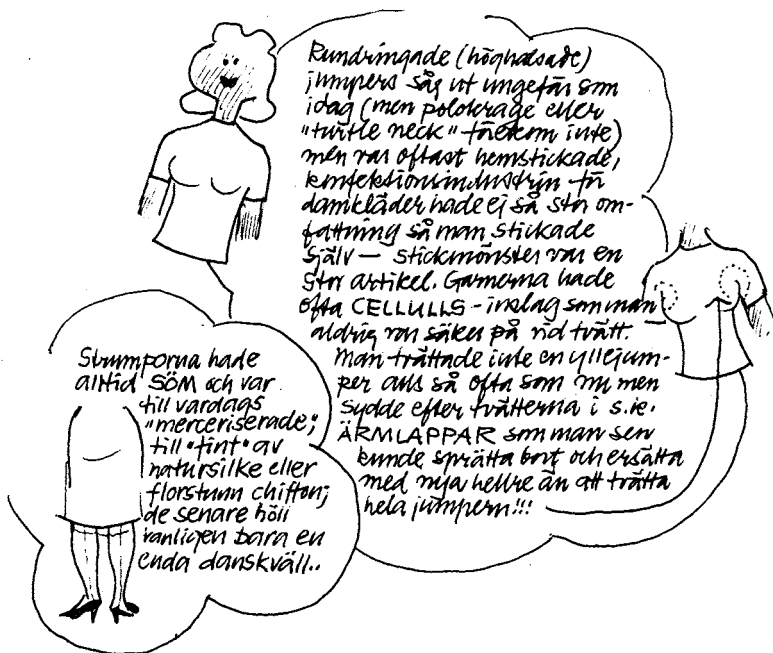 Rundringade (höghalsade)
jumpers såg ut ungefär som
idag (men polokrage eller
"turtle neck" förekom inte)
men var oftast hemstickade,
konfektionsindustrin för
damkläder hade ej så stor om-
fattning så man stickade
själv — stickmönster var en
stor artikel. Garnerna hade
ofta CELLULLS-inslag som man
aldrig var säker på vid tvätt.
Man tvättade inte en yllejum-
per alls så ofta som nu men
sydde efter tvätterna i s.k.
ÄRMLAPPAR som man sen
kunde sprätta bort och ersätta
med nya hellre än att tvätta
hela jumpern!!!
Strumporna hade
alltid SÖM och var
till vardags
"merceriserade",
till "fint" av
natursilke eller
florstunn chiffon;
de senare höll
vanligen bara en
enda danskväll..